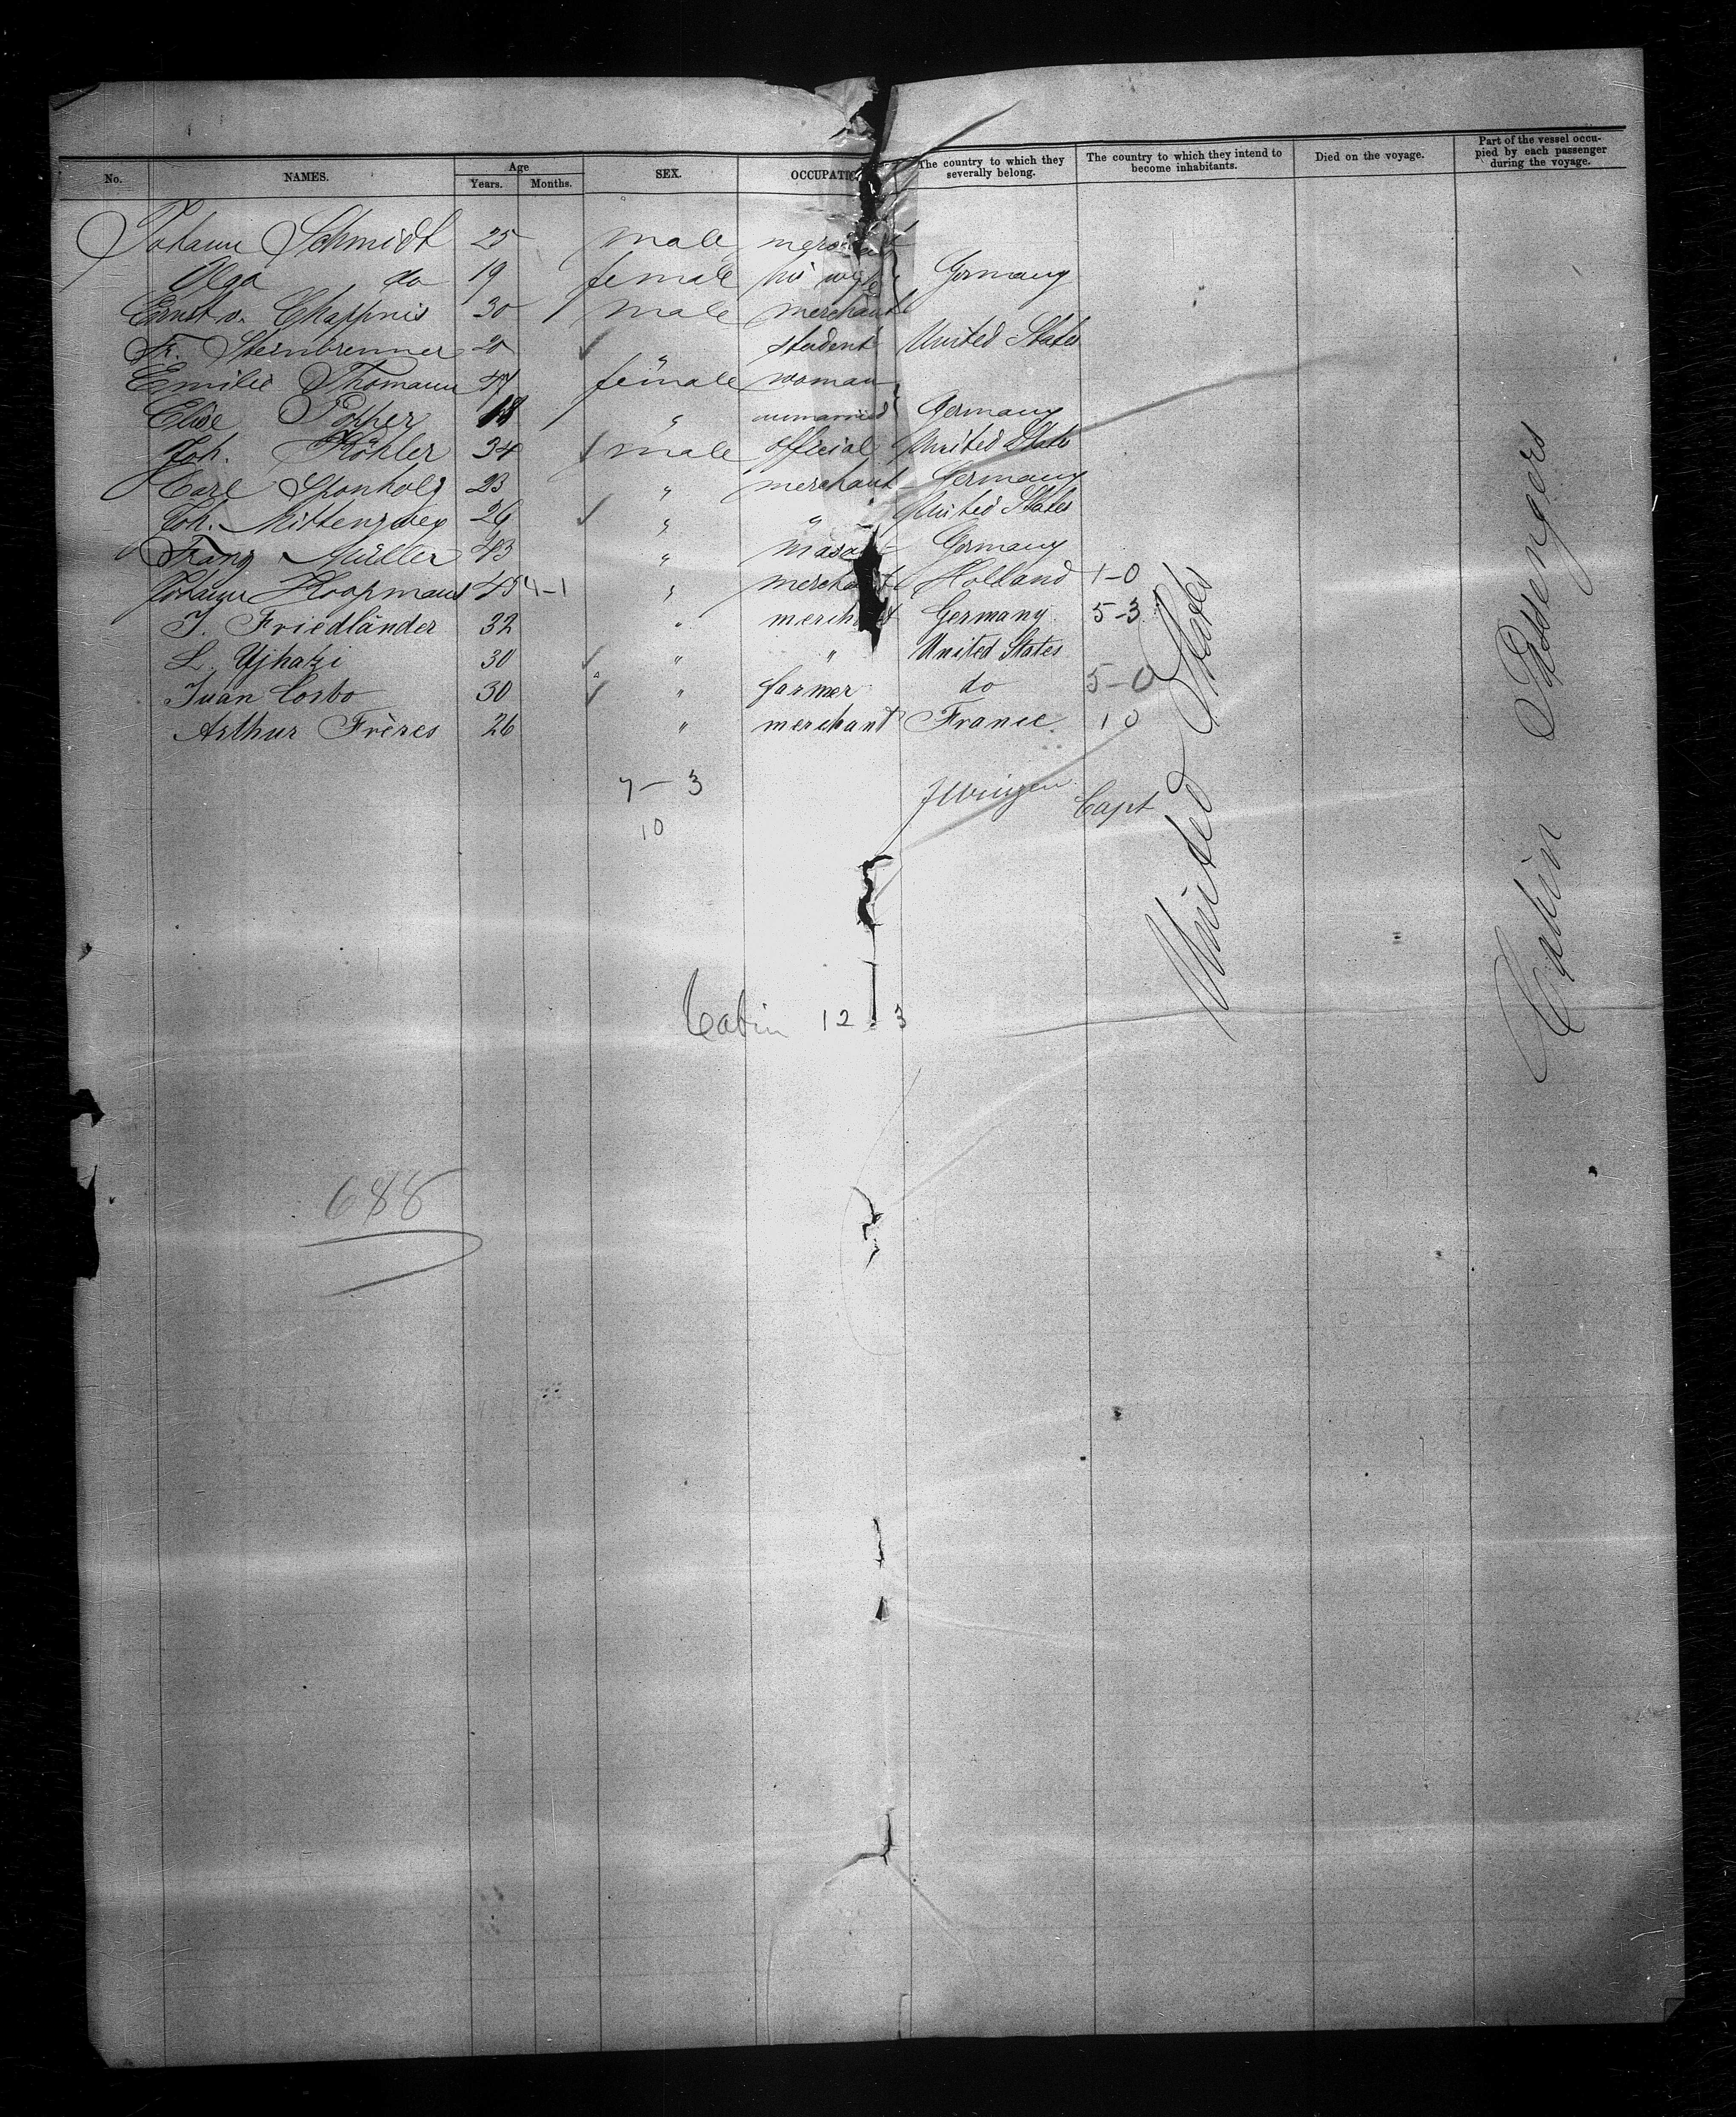 No. NAMES. Age Years. Months. SEX. OCCUPATIO The country to which they severally belong. The country to which they intend to become inhabitants. Died on the voyage. Part of the vessel occu-pied by each passenger during the voyage.
Johann Schmidt 25 male merchant
Olga do 19 female his wife Germany
Ernst v. Chappuis 30 male merchant
Fr. Steinbrenner 20 " student United States
Emilie Thomann 47 female woman
Elise Popper 18 " unmarried Germany
Joh. Köhler 34 male official United States
Carl Sponholz 23 " merchant Germany
Joh. Mittenzwey 26 " " United States
Franz Müller 43 " mason Germany
Johann Koopmans 45 4-1 " merchant Holland 1-0
J. Friedländer 32 " merchant Germany 5-3
L. Ujhazi 30 " " United States
Juan Corbo 30 " farmer do 5-0
Arthur Frères 26 " merchant France 10
7-3
10
Capt
Cabin 12.3
688
United States
Cabin Passengers